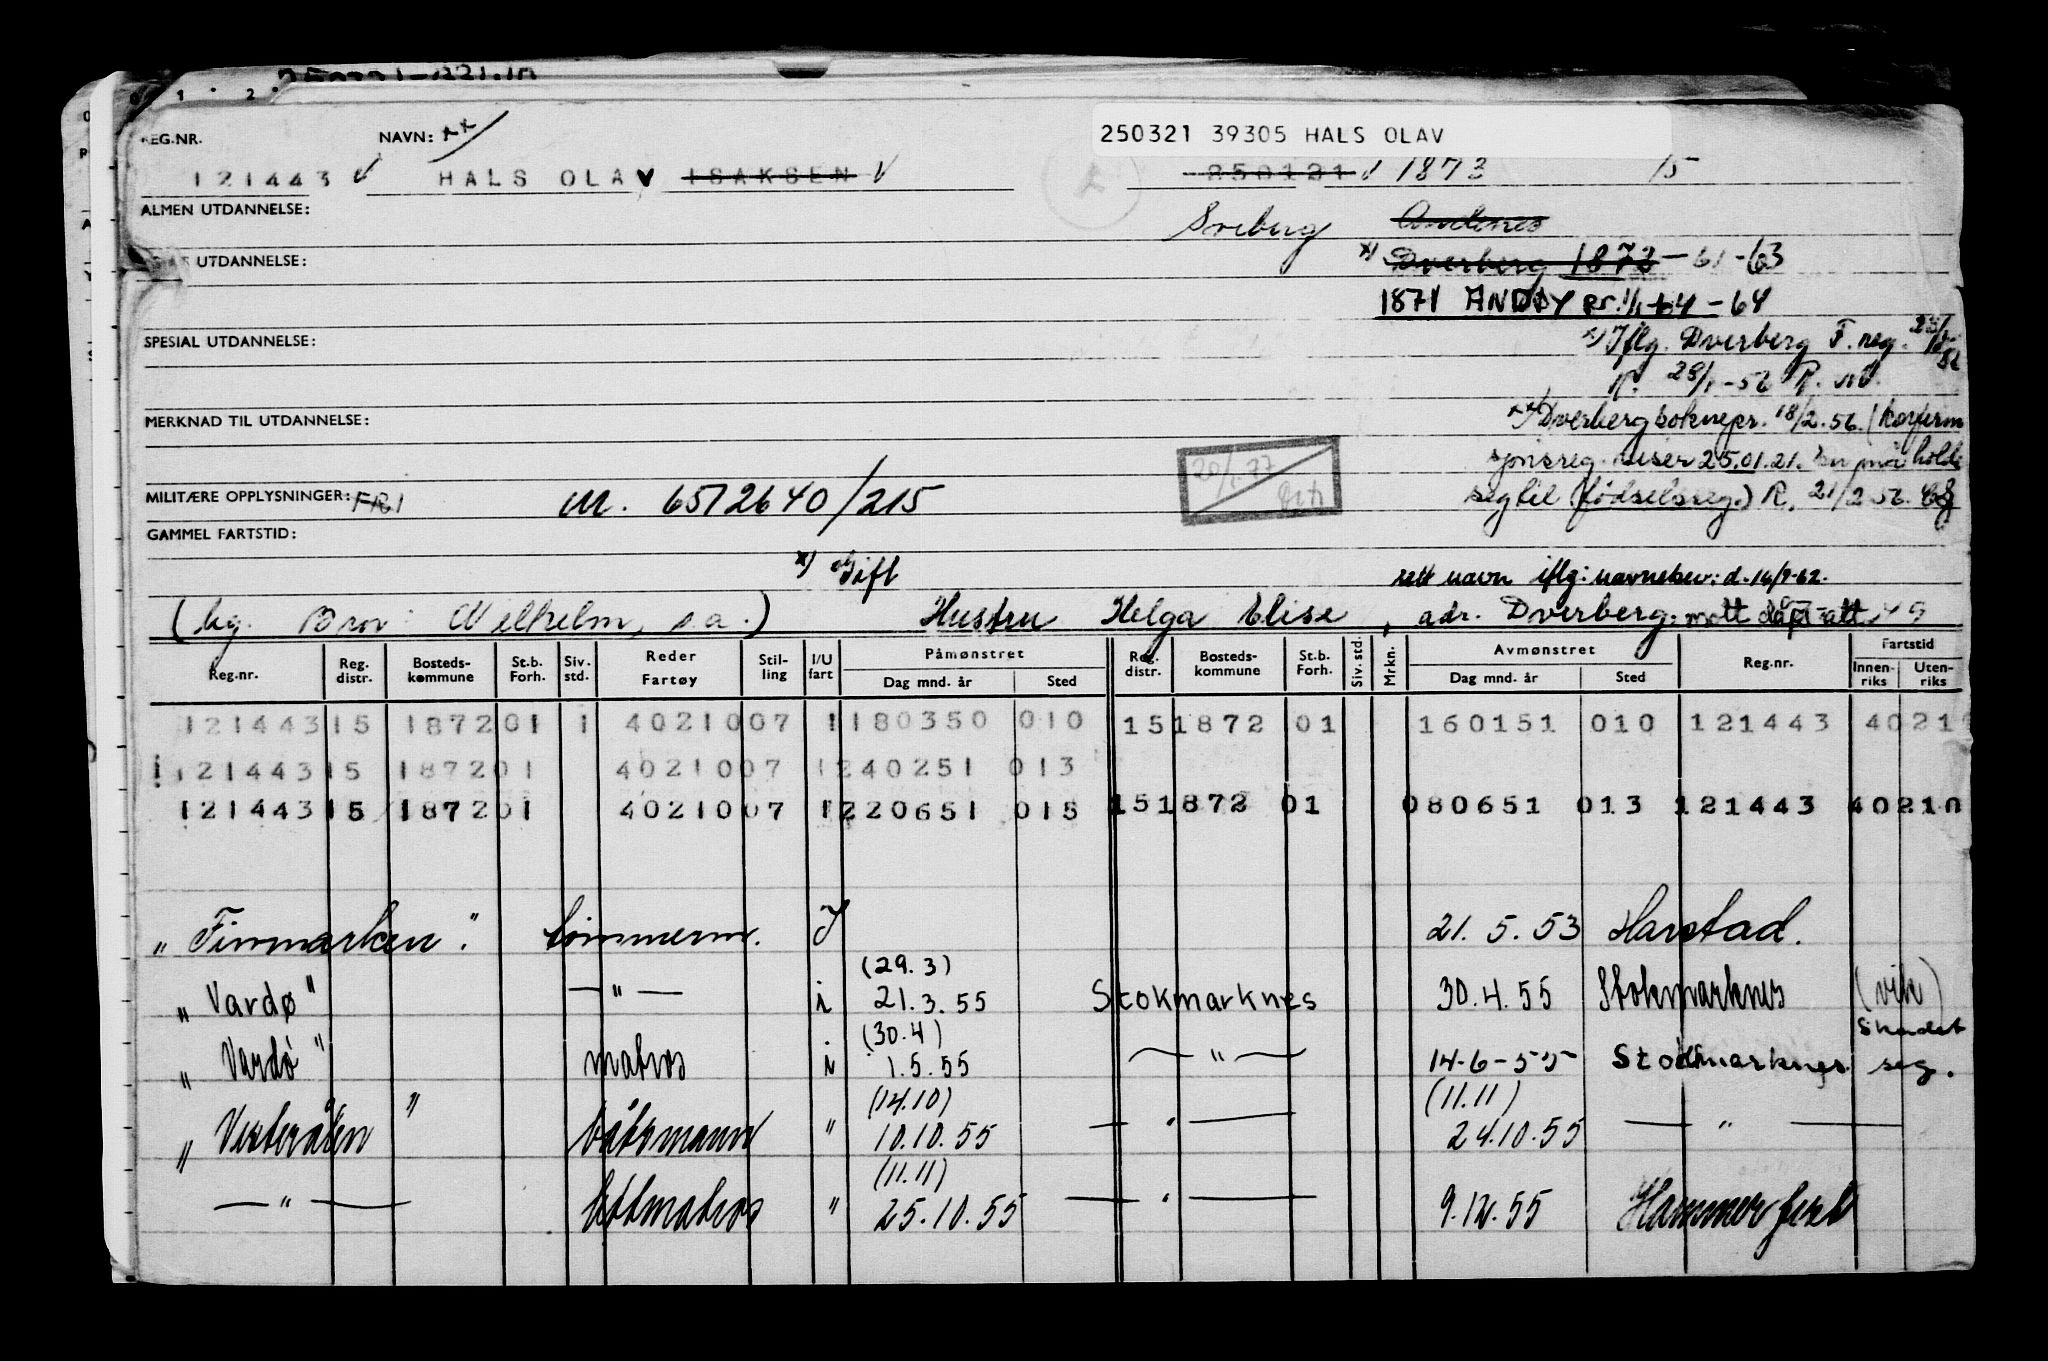 250321 39305 HALS OLAV
REG.NR. NAVN: xx/
121443 HALS OLAV ISAKSEN 250121 1873 15
ALMEN UTDANNELSE: Andenes
UTDANNELSE: x) Dverberg 1872-61-63
1871 ANDØY pr. 1/1-64-64
SPESIAL UTDANNELSE: x) Iflg. Dverberg F. reg.
R. 28/1-56 R.
MERKNAD TIL UTDANNELSE: xx) Dverberg soknepr. 18/2.56. (konfirm
sjonsreg. viser 25.01.21. holde
MILITÆRE OPPLYSNINGER: FRI M. 6512640/215 20/1.77 seg til (fødselsreg.) R. 21/2 56.
GAMMEL FARTSTID:
x) Gift rett navn iflg: navnebev: d. 14/9-62.
(lig. Bror: Wilhelm, s.a.) Hustru Helga Elise, adr. Dverberg. mott 49
Reg.nr. Reg. distr. Bosteds- kommune St.b. Forh. Siv. std. Reder Fartøy Stil- ling I/U fart Påmønstret Dag mnd. år Sted Reg. distr. Bosteds- kommune St.b. Forh. Siv. std. Mrkn. Avmønstret Dag mnd. år Sted Reg.nr. Fartstid Innen- riks Uten- riks
121443 15 1872 01 1 4021007 1 180350 010 15 1872 01 160151 010 121443 4021
121443 15 1872 01 4021007 1 240251 013
121443 15 1872 01 4021007 1 220651 015 15 1872 01 080651 013 121443 40210
"Finmarken". tømmerm. I 21.5.53 Harstad.
(29.3)
"Vardø" — " — i 21.3.55 Stokmarknes 30.4.55 Stokmarknes (vik)
(30.4) Skadet
"Vardø" matros i 1.5.55 — " — 14-6-55 Stokmarknes seg.
(14.10) (11.11)
"Vesterålen" båtsmann " 10.10.55 — " — 24.10.55 — " —
(11.11)
— " — lettmatros " 25.10.55 — " — 9.12.55 Hammerfest